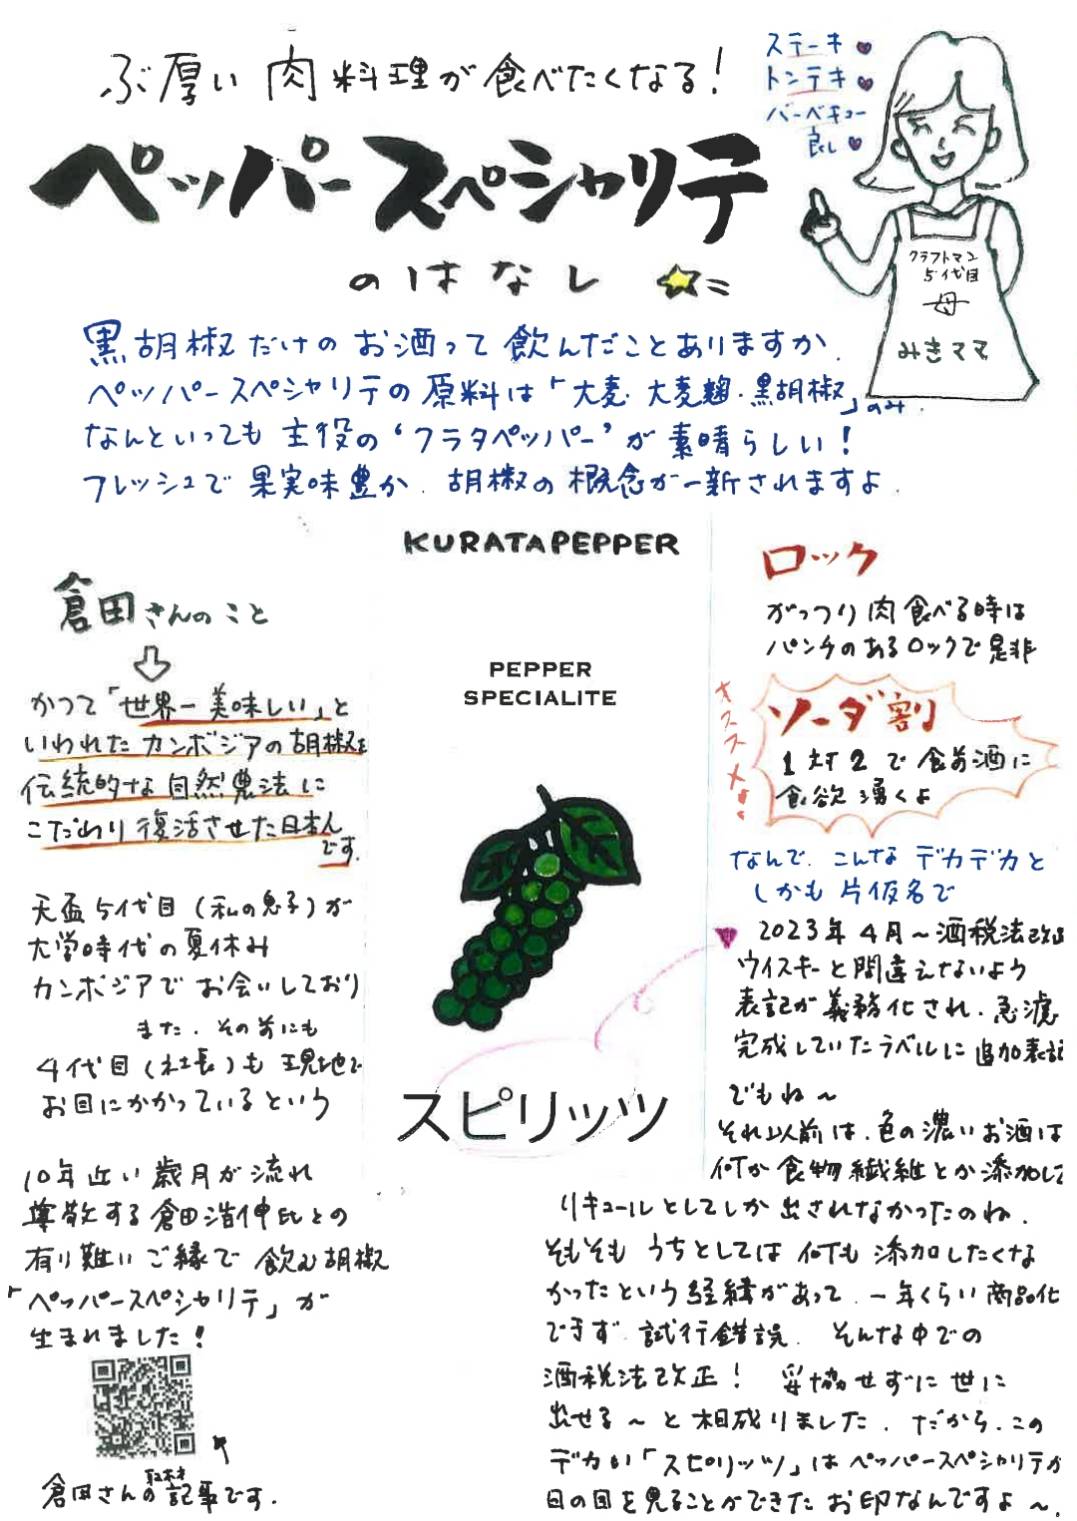 ぶ厚い肉料理が食べたくなる!
ペッパースペシャリテ
のはなし
ステーキ
トンテキ
バーベキュー
良し
クラフトマン
5代目
母
みきママ
黒胡椒だけのお酒って飲んだことありますか.
ペッパースペシャリテの原料は「大麦・大麦麹・黒胡椒」のみ.
なんといっても主役の‘クラタペッパー’が素晴らしい!
フレッシュで果実味豊か.胡椒の概念が一新されますよ.
倉田さんのこと
かつて「世界一美味しい」と
いわれたカンボジアの胡椒を
伝統的な自然農法に
こだわり復活させた日本人
です.
天盃5代目(私の息子)が
大学時代の夏休み
カンボジアでお会いしており
また.その前にも
4代目(社長)も現地で
お目にかかっているという
10年近い歳月が流れ
尊敬する倉田浩伸氏との
有り難いご縁で飲む胡椒
「ペッパースペシャリテ」が
生まれました!
倉田さんの取材記事です.
KURATAPEPPER
PEPPER
SPECIALITE
スピリッツ
ロック
がっつり肉食べる時は
パンチのあるロックで是非
オススメよ!
ソーダ割
1対2で食前酒に
食欲湧くよ
なんで.こんなデカデカと
しかも片仮名で
2023年4月〜酒税法改正
ウイスキーと間違えないよう
表記が義務化され.急遽
完成していたラベルに追加表記
でもね〜
それ以前は.色の濃いお酒は
何か食物繊維とか添加して
リキュールとしてしか出されなかったのね.
そもそもうちとしては何も添加したくな
かったという経緯があって.一年くらい商品化
できず.試行錯誤.そんな中での
酒税法改正!妥協せずに世に
出せる〜と相成りました.だから.この
デカい「スピリッツ」はペッパースペシャリテが
日の目を見ることができたお印なんですよ〜.